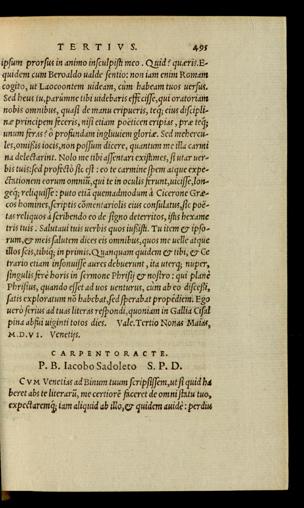 TERTIVS. 495
ipsum prorsus in animo insculpsit meo. Quid? quæris. E-
quidem cum Beroaldo ualde sentio: non iam enim Romam
cogito, ut Laocoontem uideam, cum habeam tuos uersus.
Sed heus tu, parúmne tibi uidebaris effecisse, qui oratoriam
nobis omnibus, quasi de manu eripueris, teq; eius discipli-
næ principem feceris, nisi etiam poëticen eripias, præ teq;
unum feras? ô profundam ingluuiem gloriæ. Sed mehercu-
les, omissis iocis, non possum dicere, quantum me illa carmi
na delectarint. Nolo me tibi assentari existimes, si utar uer-
bis tuis: sed profectò sic est: eo te carmine spem atque expe-
ctationem eorum omniũ, qui te in oculis ferunt, uicisse, lon-
geq; reliquisse: puto etiã quemadmodum à Cicerone Græ-
cos homines, scriptis cõmentariolis eius consulatus, sic poë-
tas reliquos à scribendo eo de signo deterritos, istis hexame
tris tuis. Salutaui tuis uerbis quos iußisti. Tu item & ipso-
rum, & meis salutem dices eis omnibus, quos me uelle atque
illos scis, tibiq; in primis. Quanquam quidem & tibi, & Ca
trario etiam insonuisse aures debuerunt, ita uterq; nuper,
singulis ferè horis in sermone Phrisij & nostro: qui planè
Phrisius, quando esset ad uos uenturus, cum ab eo discessi,
satis exploratum nõ habebat, sed sperabat propédiem. Ego
uerò serius ad tuas literas respondi, quoniam in Gallia Cisal
pina abfui uiginti totos dies. Vale. Tertio Nonas Maias,
M.D.VI. Venetijs.
CARPENTORACTE.
P. B. Iacobo Sadoleto S. P. D.
CVM Venetias ad Binum tuum scripsissem, ut si quid ha
beret abs te literarũ, me certiorẽ faceret de omni statu tuo,
expectaremq; iam aliquid ab illo, & quidem auidè: perdiu